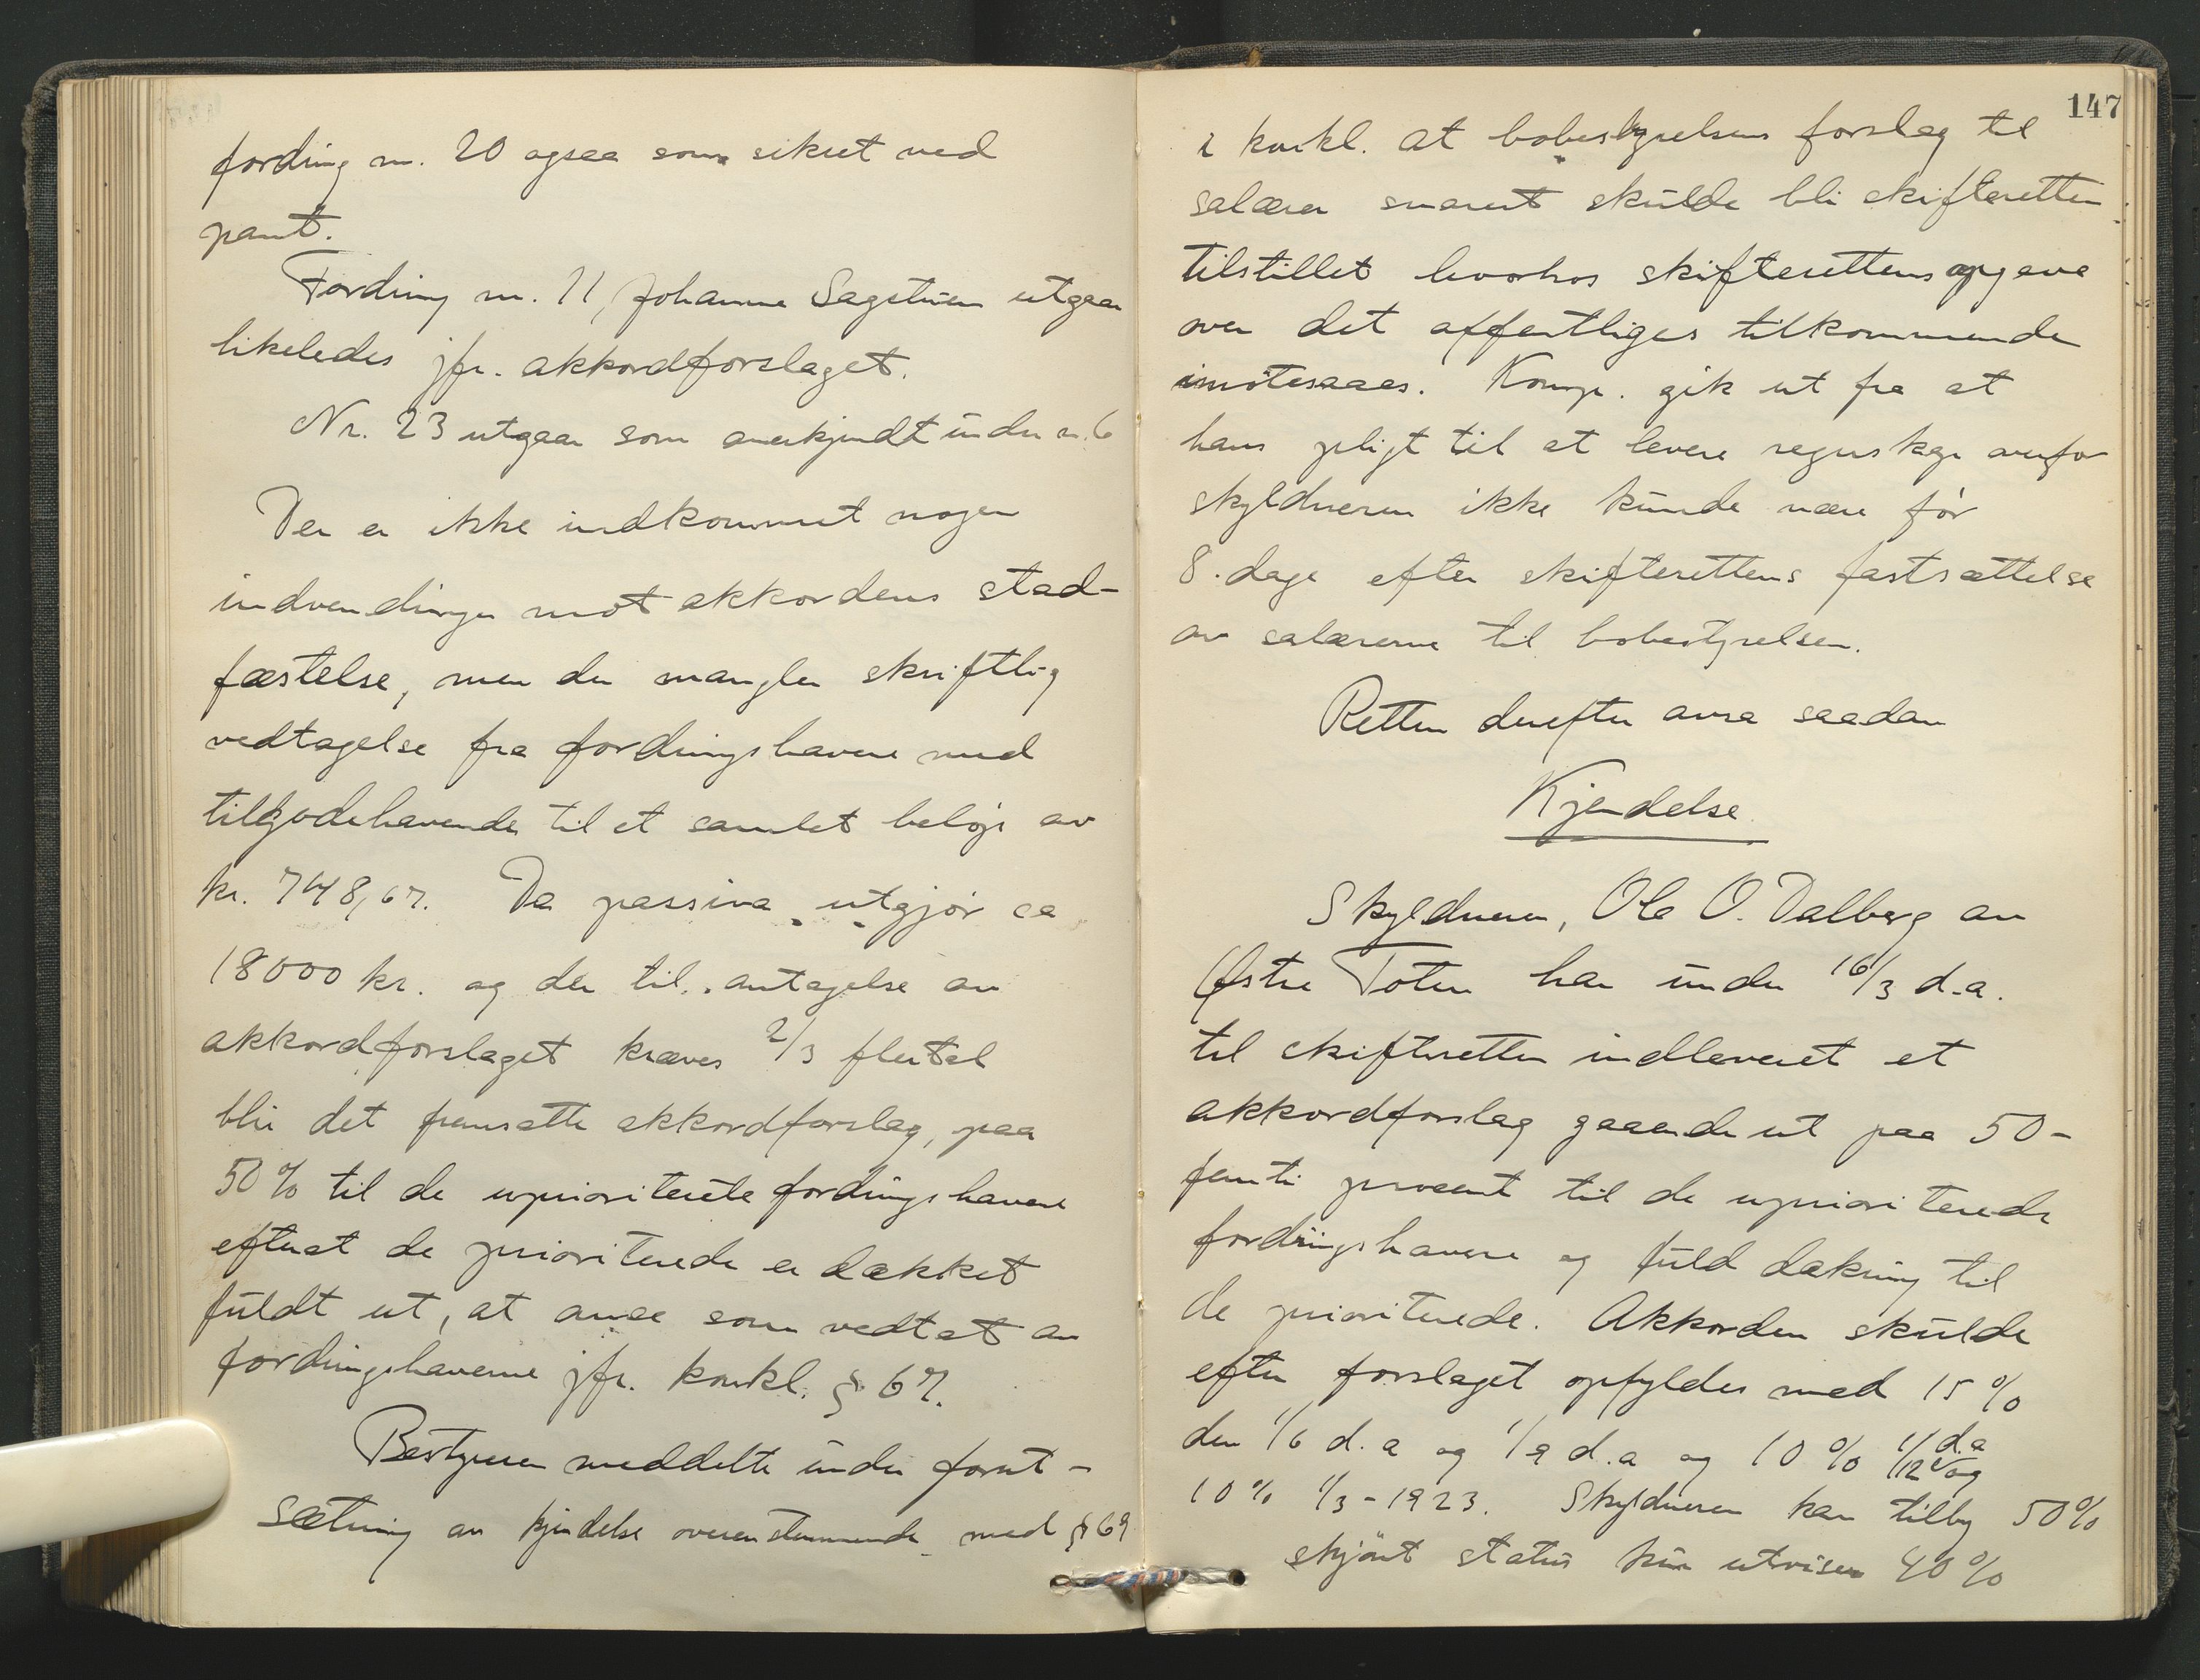 fordring nr. 20 ogsaa som sikret ved
pant.
Fordring nr. 11, Johanne Sagstuen utgaar
likeledes jfr. akkordforslaget.
Nr. 23 utgaar som anerkjendt under nr. 6
Der er ikke indkommet nogen
indvendinger mot akkordens stad-
fæstelse, men der mangler skriftlig
vedtagelse fra fordringshavere med
tilgodehavende til et samlet beløp av
kr. 748,67. Da passiva utgjør ca
18000 kr. og der til antagelse av
akkordforslaget kræves 2/3 flertal
blir det fremsatte akkordforslag, paa
50% til de uprioriterete fordringshavere
efterat de prioriterede er dækket
fuldt ut, at anse som vedtat av
fordringshaverne jfr. konkl. § 67.
Bestyreren meddelte under forut-
sætning av kjendelse overensstemmende med § 69
147
i konkl. at bobestyrelsens forslag til
salærer snarest skulde bli skifteretten
tilstillet hvorhos skifterettens opgave
over det offentliges tilkommende
imøtesaaes. Komp. gik ut fra at
hans pligt til at levere regnskap overfor
skyldneren ikke kunde være før
8. dage efter skifterettens fastsættelse
av salærerne til bobestyrelsen.
Retten derefter avsa saadan
Kjendelse
Skyldneren, Ole O. Dalberg av
Østre Toten har under 16/3 d.a.
til skifteretten indleveret et
akkordforslag gaaende ut paa 50-
femti procent til de uprioriterede
fordringshavere og fuld dækning til
de prioriterede. Akkorden skulde
efter forslaget opfyldes med 15%
den 1/6 d.a og 1/9 d.a og 10% 1/12 d.a og
10% 1/3-1923. Skyldneren kan tilby 50%
skjønt status kun utviser 40%